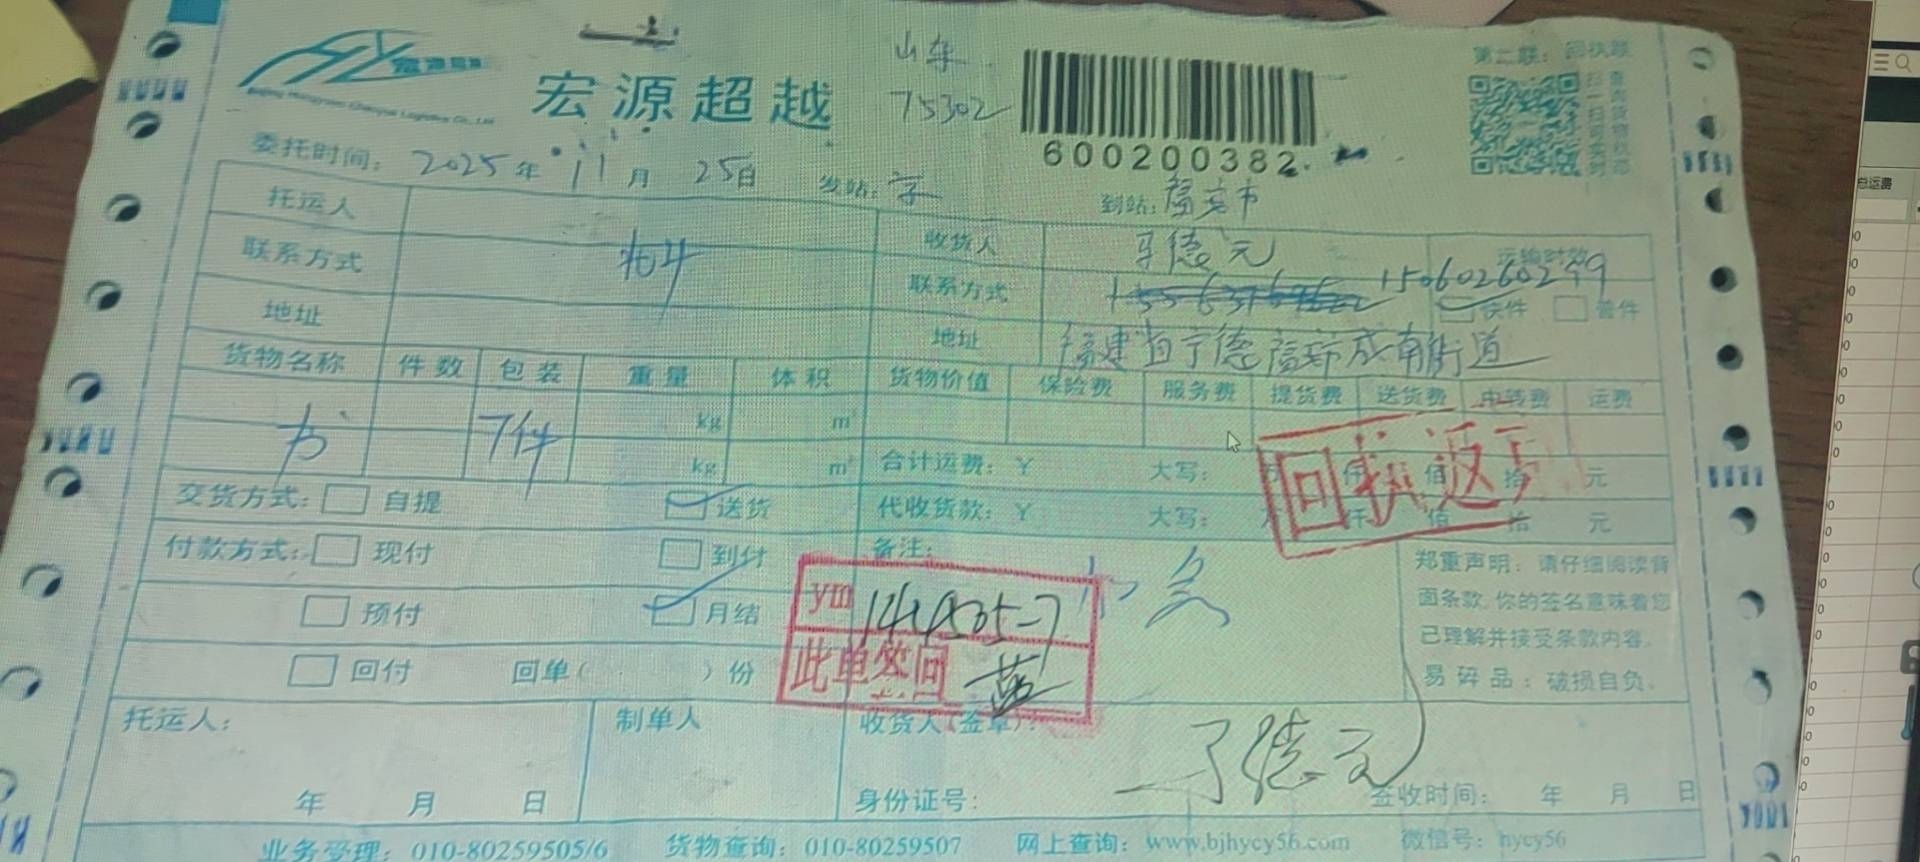 宏源超越
山东
75302
600200382
第二联：回执联
委托时间：2025年11月25日 发站：京 到站：福安市
托运人
收货人 马德元 运输时效
联系方式
联系方式 15060260299
快件 普件
地址
地址 福建省宁德福安市成南街道
货物名称 件数 包装 重量 体积 货物价值 保险费 服务费 提货费 送货费 中转费 运费
书 7件 kg m³
kg m³ 合计运费：￥ 大写： 仟 佰 拾 元
回执返
交货方式： 自提 送货 代收货款：￥ 大写： 仟 佰 拾 元
付款方式： 现付 到付 备注：
预付 月结
ym 144205-7
此单签回
回付 回单（ ）份
郑重声明：请仔细阅读背
面条款，你的签名意味着您
已理解并接受条款内容。
易碎品：破损自负。
托运人： 制单人 收货人（签章）：
年 月 日 身份证号： 签收时间： 年 月 日
业务受理：010-80259505/6 货物查询：010-80259507 网上查询：www.bjhycy56.com 微信号：hycy56
总运费